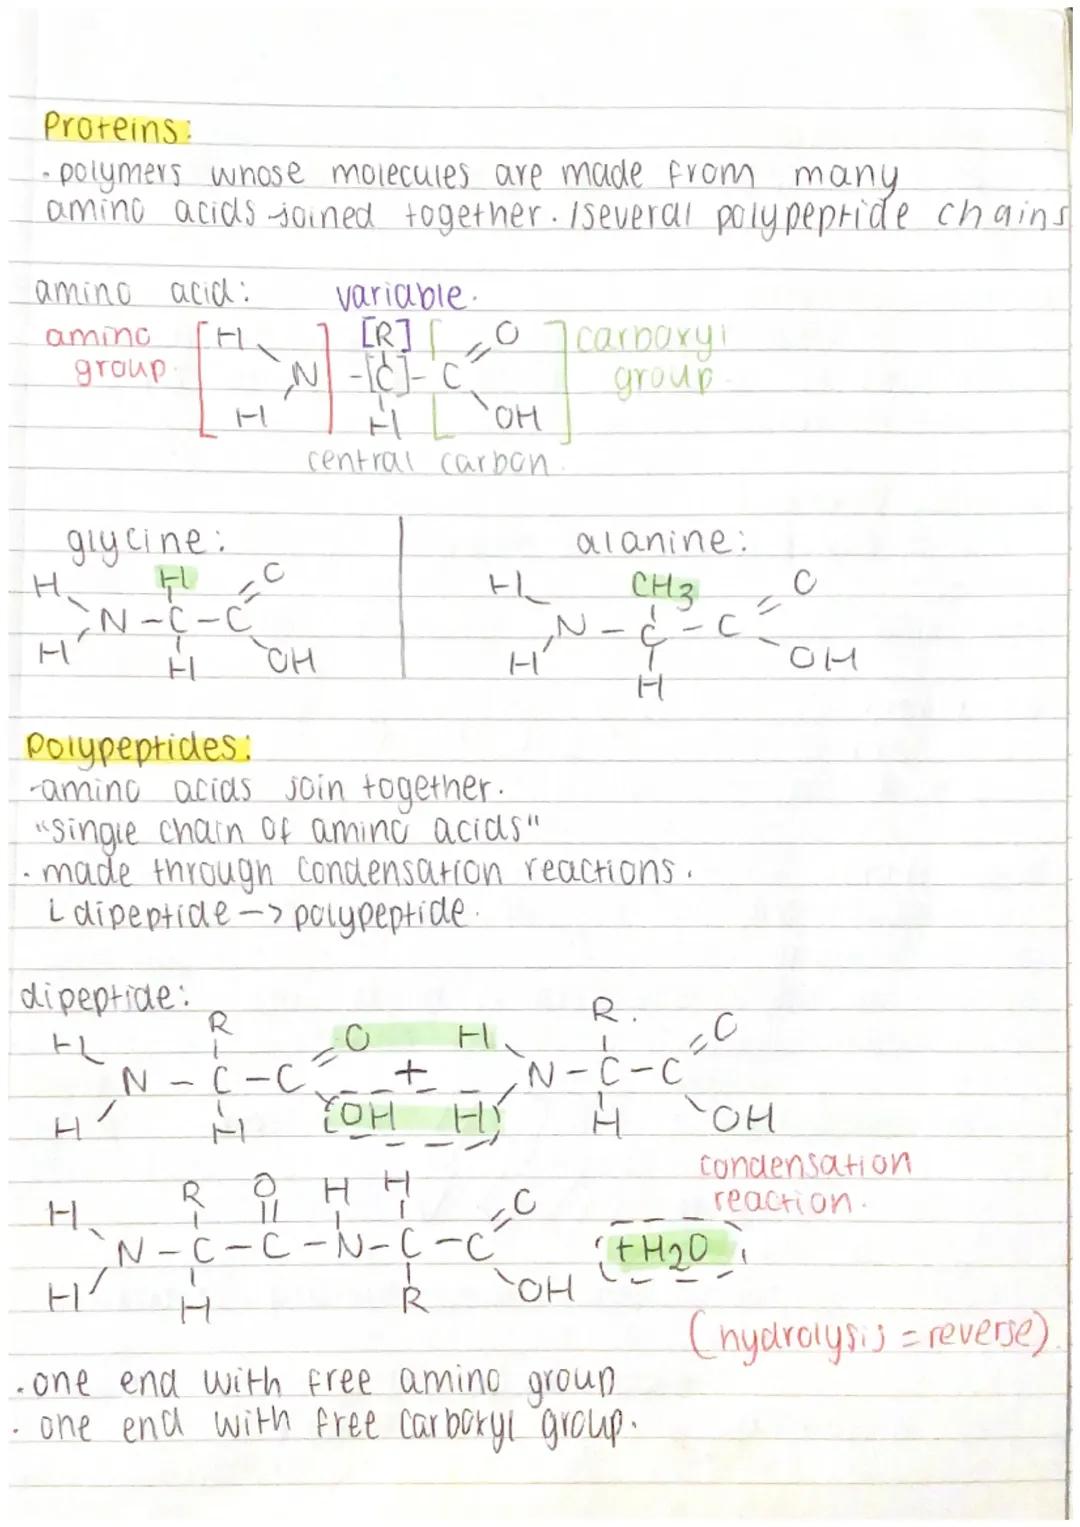 Proteins:
· polymers whose molecules are made from many
amino acids joined together. /several polypeptide chains
amino acid: variable.
amino [H [R] [ O ] carboxyl
group. N] -[C]- C group.
H H OH
central carbon.
glycine: alanine:
H H O H CH3 O
N - C - C N - C - C
H H OH H H OH
Polypeptides:
-amino acids join together.
"single chain of amino acids"
· made through condensation reactions.
L dipeptide -> polypeptide.
dipeptide:
R R.
H O H O
N - C - C + N - C - C
H H OH H H OH
condensation
reaction.
H R O H H O
N - C - C - N - C - C + H2O
H H R OH
(hydrolysis = reverse).
· one end with free amino group
· one end with free carboxyl group.